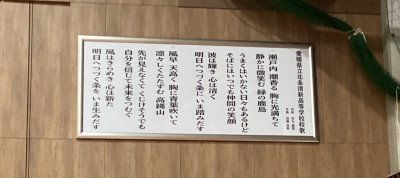 愛媛県立北条清新高等学校校歌
瀬戸内 潮香る 胸に光満ちて
静かに微笑む 緑の鹿島
うまくはいかない日々もあるけど
そばにはいつでも仲間の笑顔
波は輝き 心は清く
明日へつづく糸に いま踏みだす
風早 天高く 胸に青葉吹いて
凛々しくたたずむ 高縄山
先が見えなくてくじけそうでも
自分を信じて未来をつむぐ
風はきらめき 心は新た
明日へつづく糸を いま生みだす